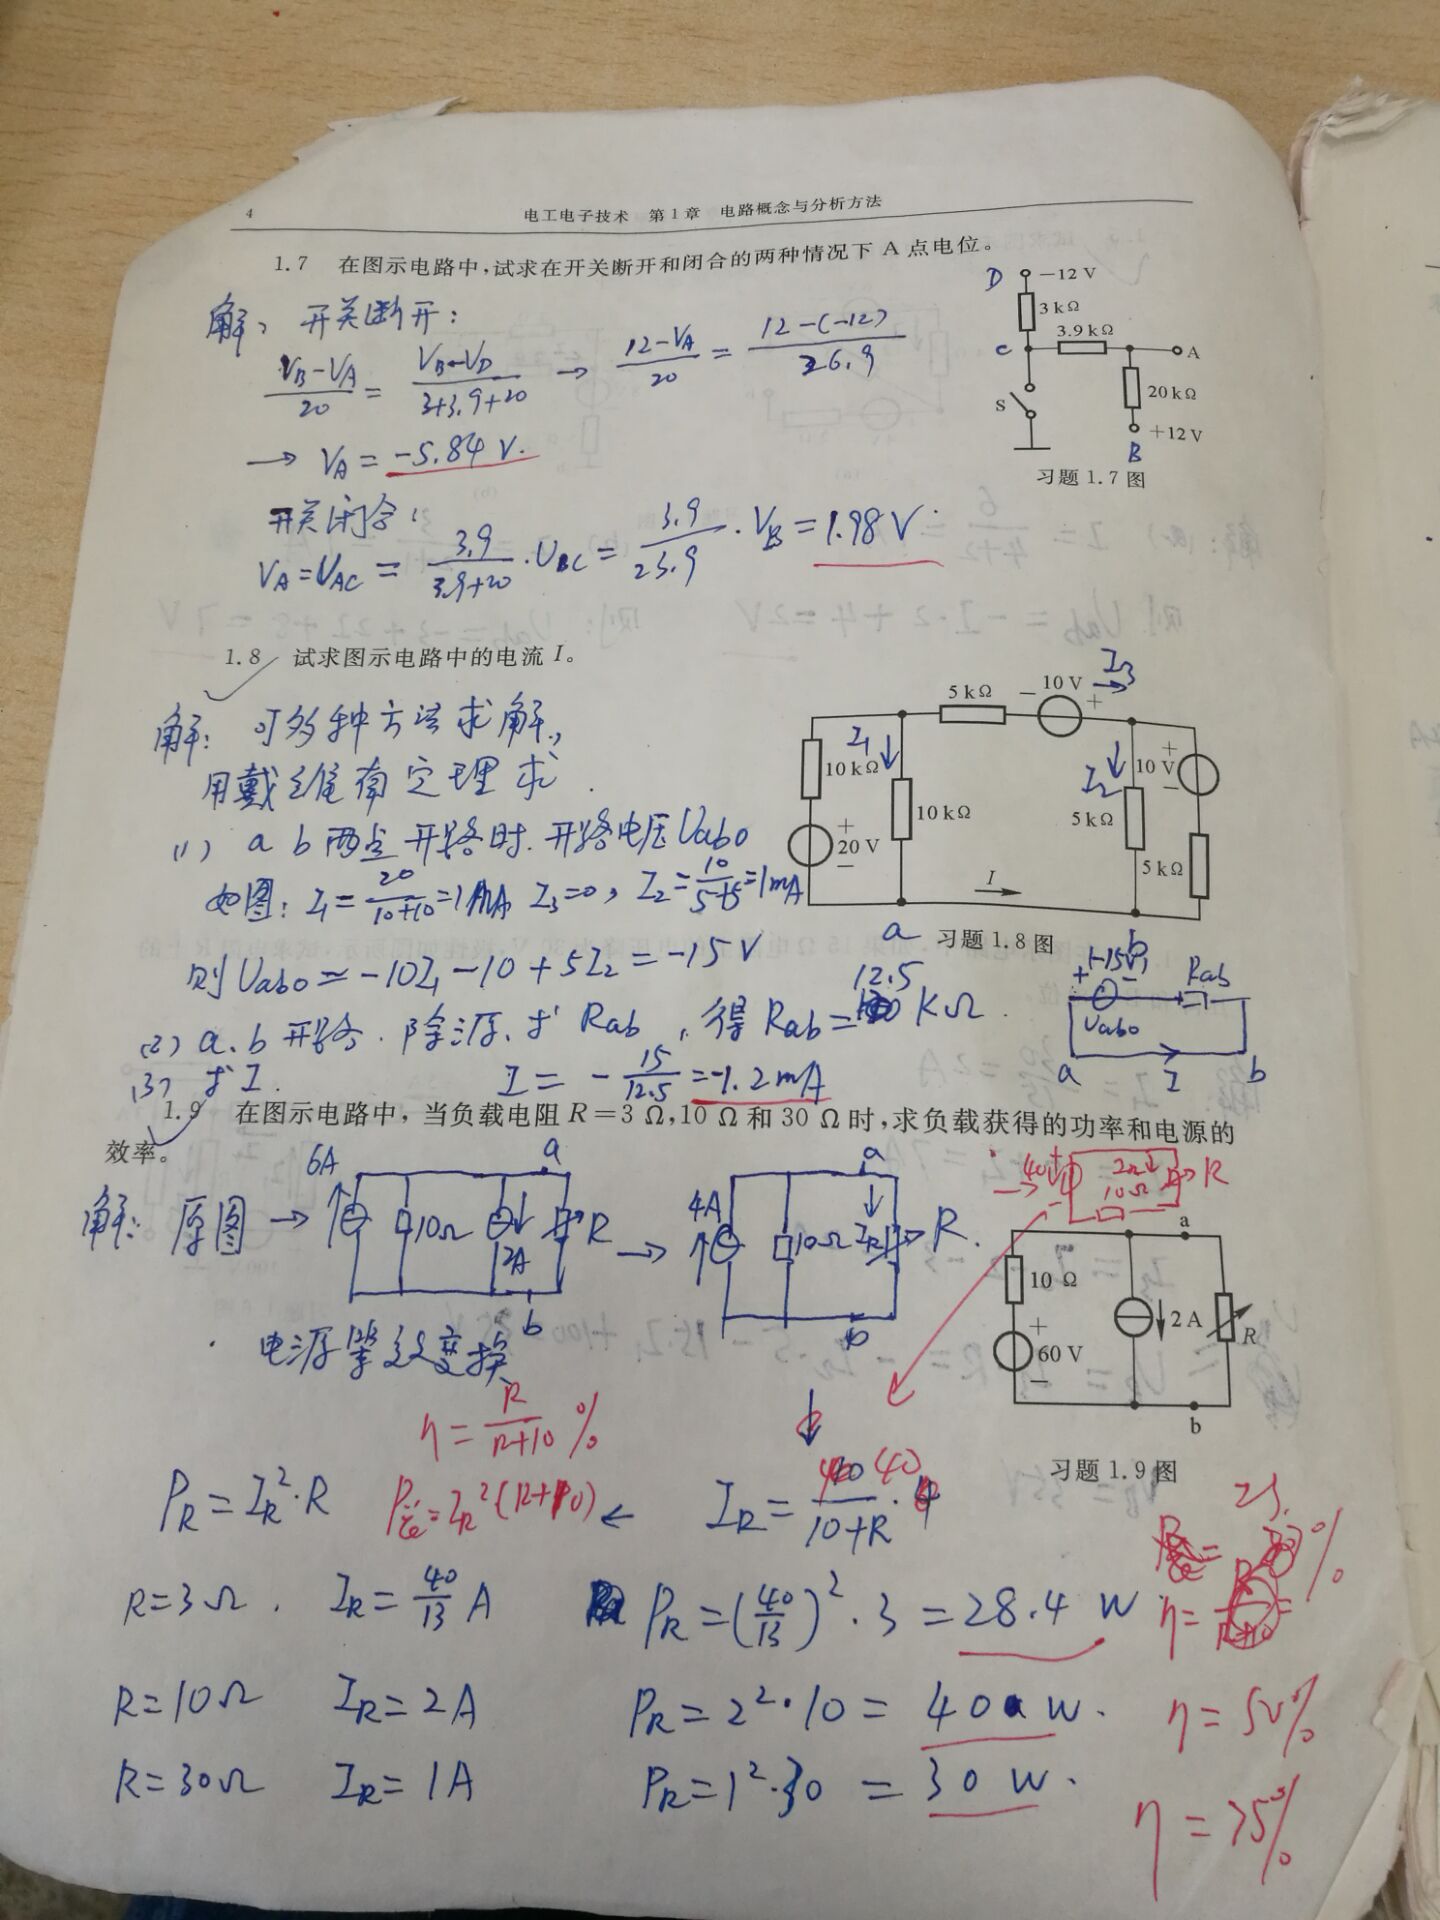 4
电工电子技术 第1章 电路概念与分析方法
1.7 在图示电路中,试求在开关断开和闭合的两种情况下 A 点电位。
D
−12 V
3 kΩ
C
3.9 kΩ
A
20 kΩ
S
+12 V
B
习题 1.7 图
解: 开关断开:
(VB−VA)/20 = (VB−VD)/(3+3.9+20) → (12−VA)/20 = (12−(−12))/26.9
→ VA = −5.84 V.
开关闭合:
VA=UAC = 3.9/(3.9+20) · UBC = 3.9/23.9 · VB = 1.98 V.
1.8 试求图示电路中的电流 I。
解: 可多种方法求解,
用戴维南定理求.
(1) a b 两点开路时. 开路电压Uabo
如图: I1 = 20/(10+10) = 1mA I3=0, I2 = 10/(5+5) = 1mA
则Uabo = −10I1 −10 + 5I2 = −15 V
(2) a、b 开路. 除源. 求 Rab , 得 Rab = 12.5 KΩ.
(3) 求 I. I = −15/12.5 = −1.2 mA
5 kΩ
− 10 V +
I3
I1
10 kΩ
10 kΩ
+
20 V
−
I2
5 kΩ
+
10 V
−
5 kΩ
I
a
b
习题 1.8 图
+ (−15V) −
Rab
Uabo
a I b
1.9 在图示电路中, 当负载电阻 R=3 Ω,10 Ω 和 30 Ω 时,求负载获得的功率和电源的
效率。
解: 原图 →
6A
10Ω
2A
a
R
b
→
4A
10Ω
IR
a
R.
b
40V
10Ω
R
电源等效变换
10 Ω
+
60 V
−
2 A
a
R
b
习题 1.9 图
η = R/(R+10) %
PR = IR²·R
P = IR²(R+10) ←
IR = 40/(10+R)
R=3Ω. IR = 40/13 A PR = (40/13)²·3 = 28.4 W
η =
23.
%
R=10Ω IR = 2A PR = 2²·10 = 40 W. η = 50%
R=30Ω IR = 1A PR = 1²·30 = 30 W. η = 75%